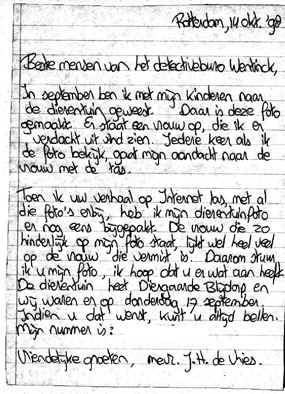 Rotterdam, 14 okt. '98
Beste mensen van het detectivebureau Wentinck,
In september ben ik met mijn kinderen naar
de dierentuin geweest. Daar is deze foto
gemaakt. Er staat een vrouw op, die ik er
verdacht uit vind zien. Iedere keer als ik
de foto bekijk, gaat mijn aandacht naar de
vrouw met de tas.
Toen ik uw verhaal op Internet las, met al
die foto's erbij, heb ik mijn dierentuinfoto
er nog eens bijgepakt. De vrouw die zo
hinderlijk op mijn foto staat, lijkt wel heel veel
op de vrouw die vermist is. Daarom stuur
ik u mijn foto, ik hoop dat u er wat aan heeft.
De dierentuin heet Diergaarde Blijdorp en
wij waren er op donderdag 17 september.
Indien u dat wenst, kunt u altijd bellen.
Mijn nummer is:
Vriendelijke groeten, mevr. J.H. de Vries.